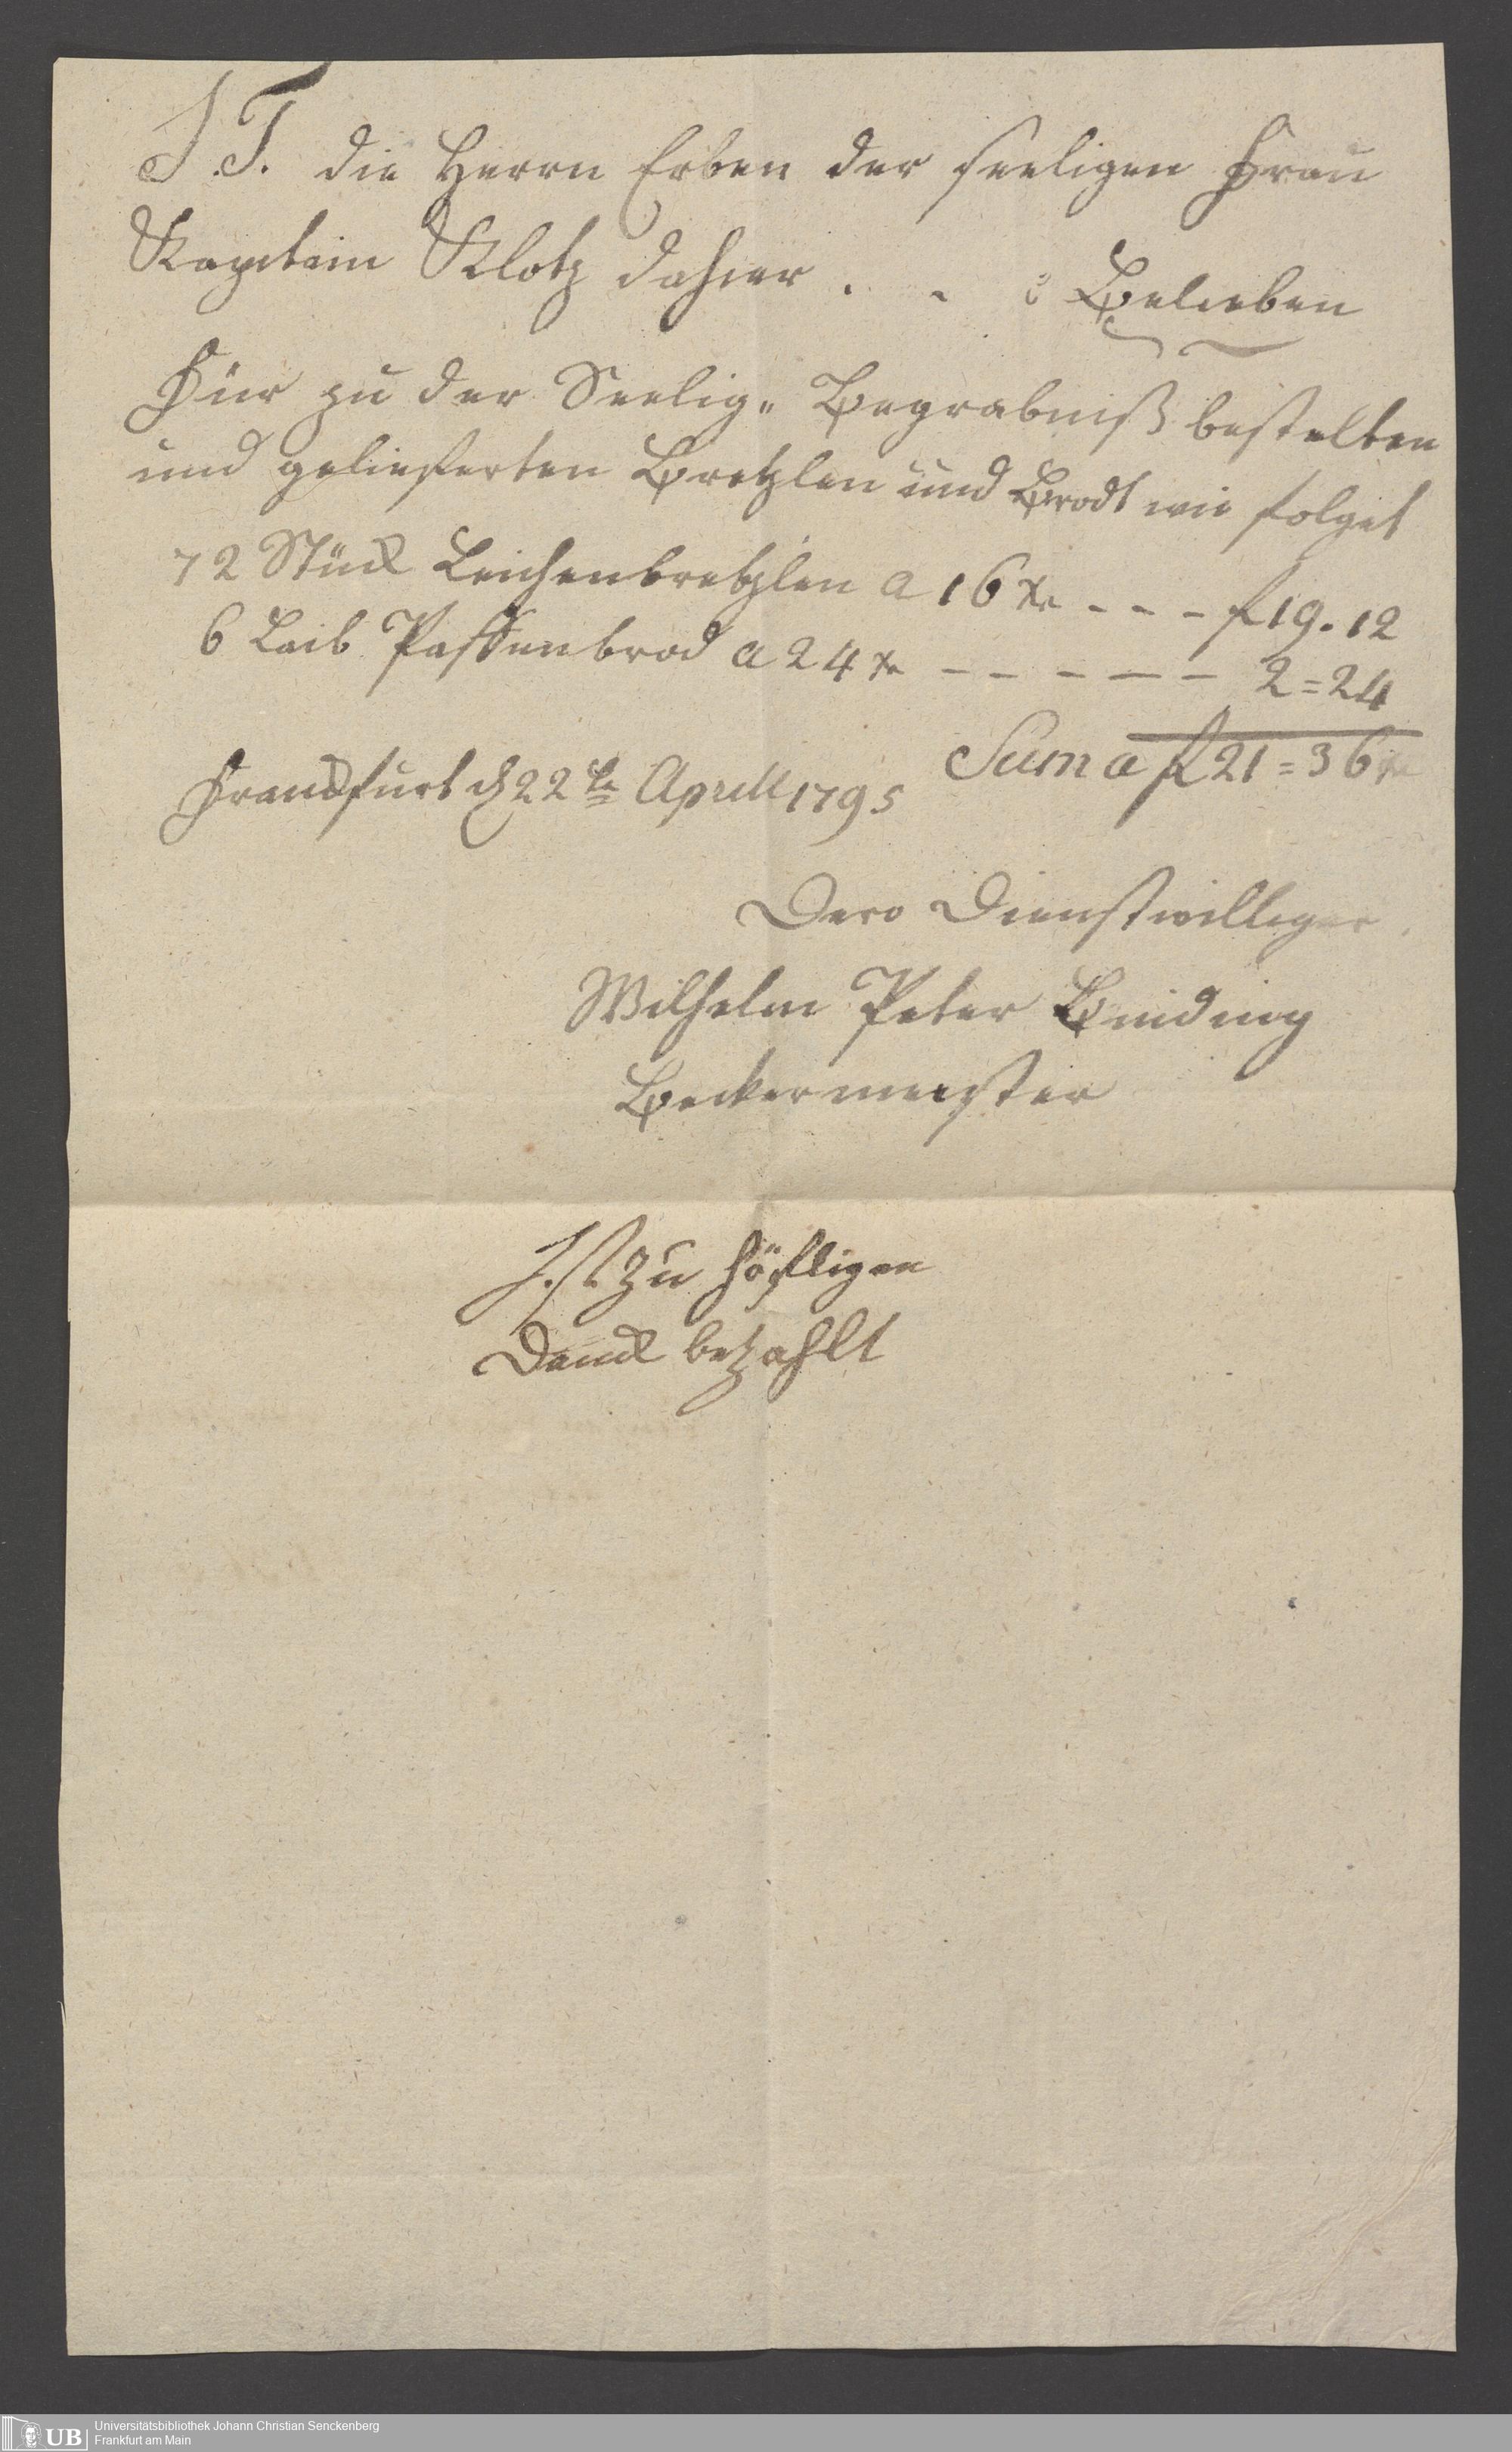 S.T. die Herrn Erben der seeligen Frau
Kapitain Klotz dahier . . : Belieben
Für zu der Seelig„ Begrabniß bestelten
und gelieferten Bretzlen und Brodt wie folget
72 Stück Leichenbretzlen a 16 xr - - - f 19. 12
6 Laib Passenbrod a 24 xr - - - - - 2 = 24
Suma f 21 = 36 xr
Franckfurt d 22te Aprill 1795
Dero Dienstwilliger
Wilhelm Peter Binding
Beckermeister
Ist zu höfligen
Danck betzahlt
UB
Universitätsbibliothek Johann Christian Senckenberg
Frankfurt am Main